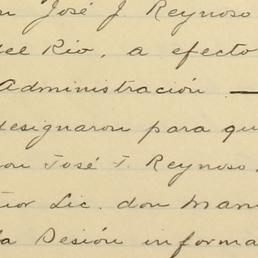 n José J. Reynoso
del Rio, a efecto
Administración —
designaron para qu
on José J. Reynoso,
ñor Lic. don Man
la Sesión informa